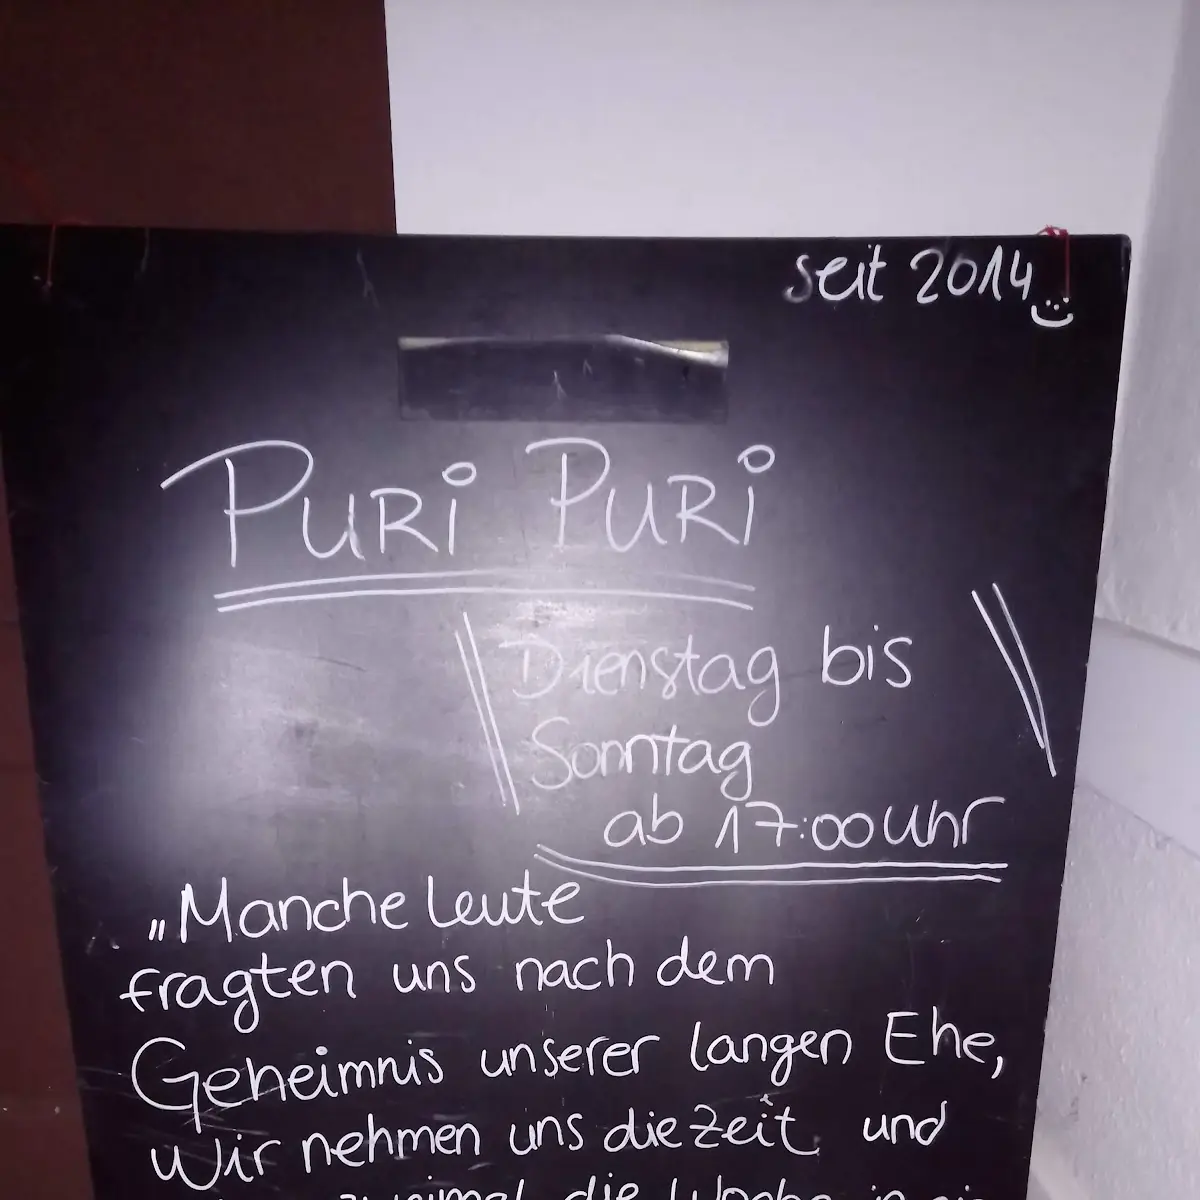 seit 2014
PURi PURi
Dienstag bis
Sonntag
ab 17:00 Uhr
„Manche Leute
fragten uns nach dem
Geheimnis unserer langen Ehe,
Wir nehmen uns die Zeit und
zweimal die Woche in